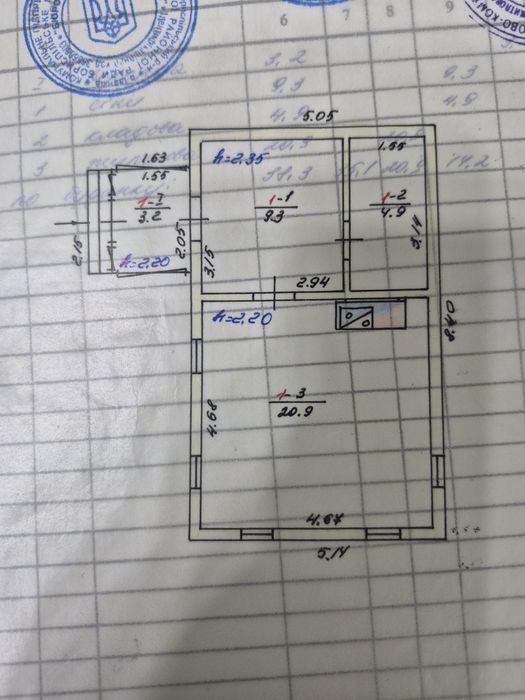 6 7 8 9
3,2
I 9,3 9,3
1 сіни 4,9 4,9
2 кладова
3 38,3 15,1 20,9 17,2
по будинку:
5.05
1.63
1.55
h=2.35
1.55
1-I
3.2
1-1
9.3
1-2
4.9
2.15
2.05
3.15
3.14
h=2.20
2.94
h=2.20
8.40
1-3
20.9
4.68
4.67
5.14